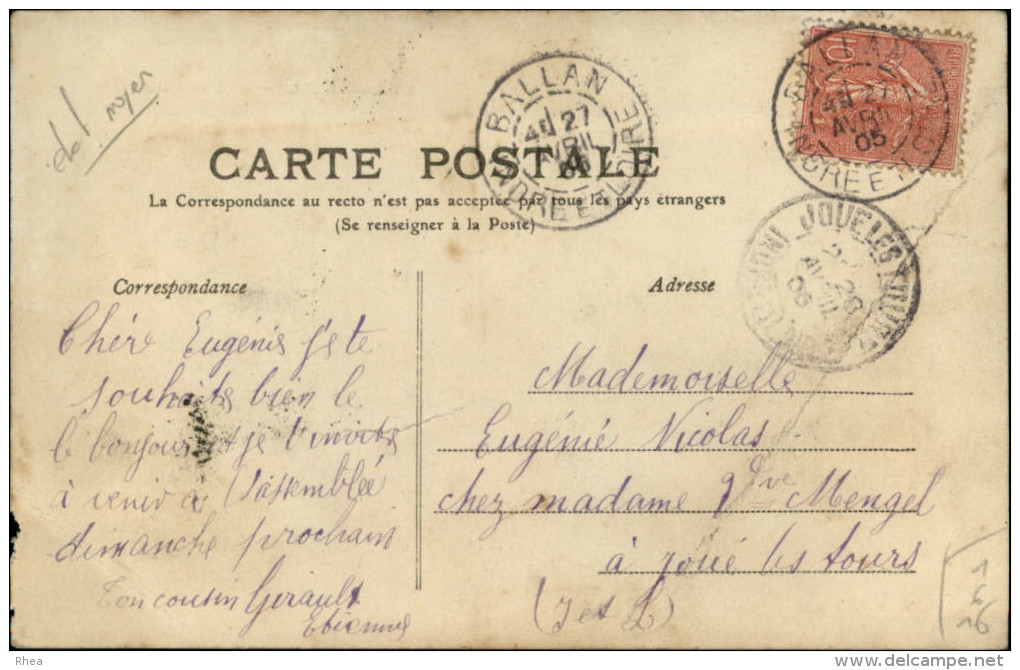 dal noyer
BALLAN
27
AVRIL
05
INDRE ET LOIRE
BALLAN
27
AVRIL
05
INDRE ET
10
CARTE POSTALE
La Correspondance au recto n'est pas acceptée par tous les pays étrangers
(Se renseigner à la Poste)
JOUE LES TOURS
28
05
Correspondance
Adresse
Chère Eugénie je te
souhaite bien le
le bonjour et je t'invite
à venir a l'assemblée
dimanche prochain
Ton cousin Girault
Etienne
Mademoiselle
Eugénie Nicolas
chez madame Vve Mengel
à joué les tours
(I et L)
1
6
16
Rhea
delcampe.net